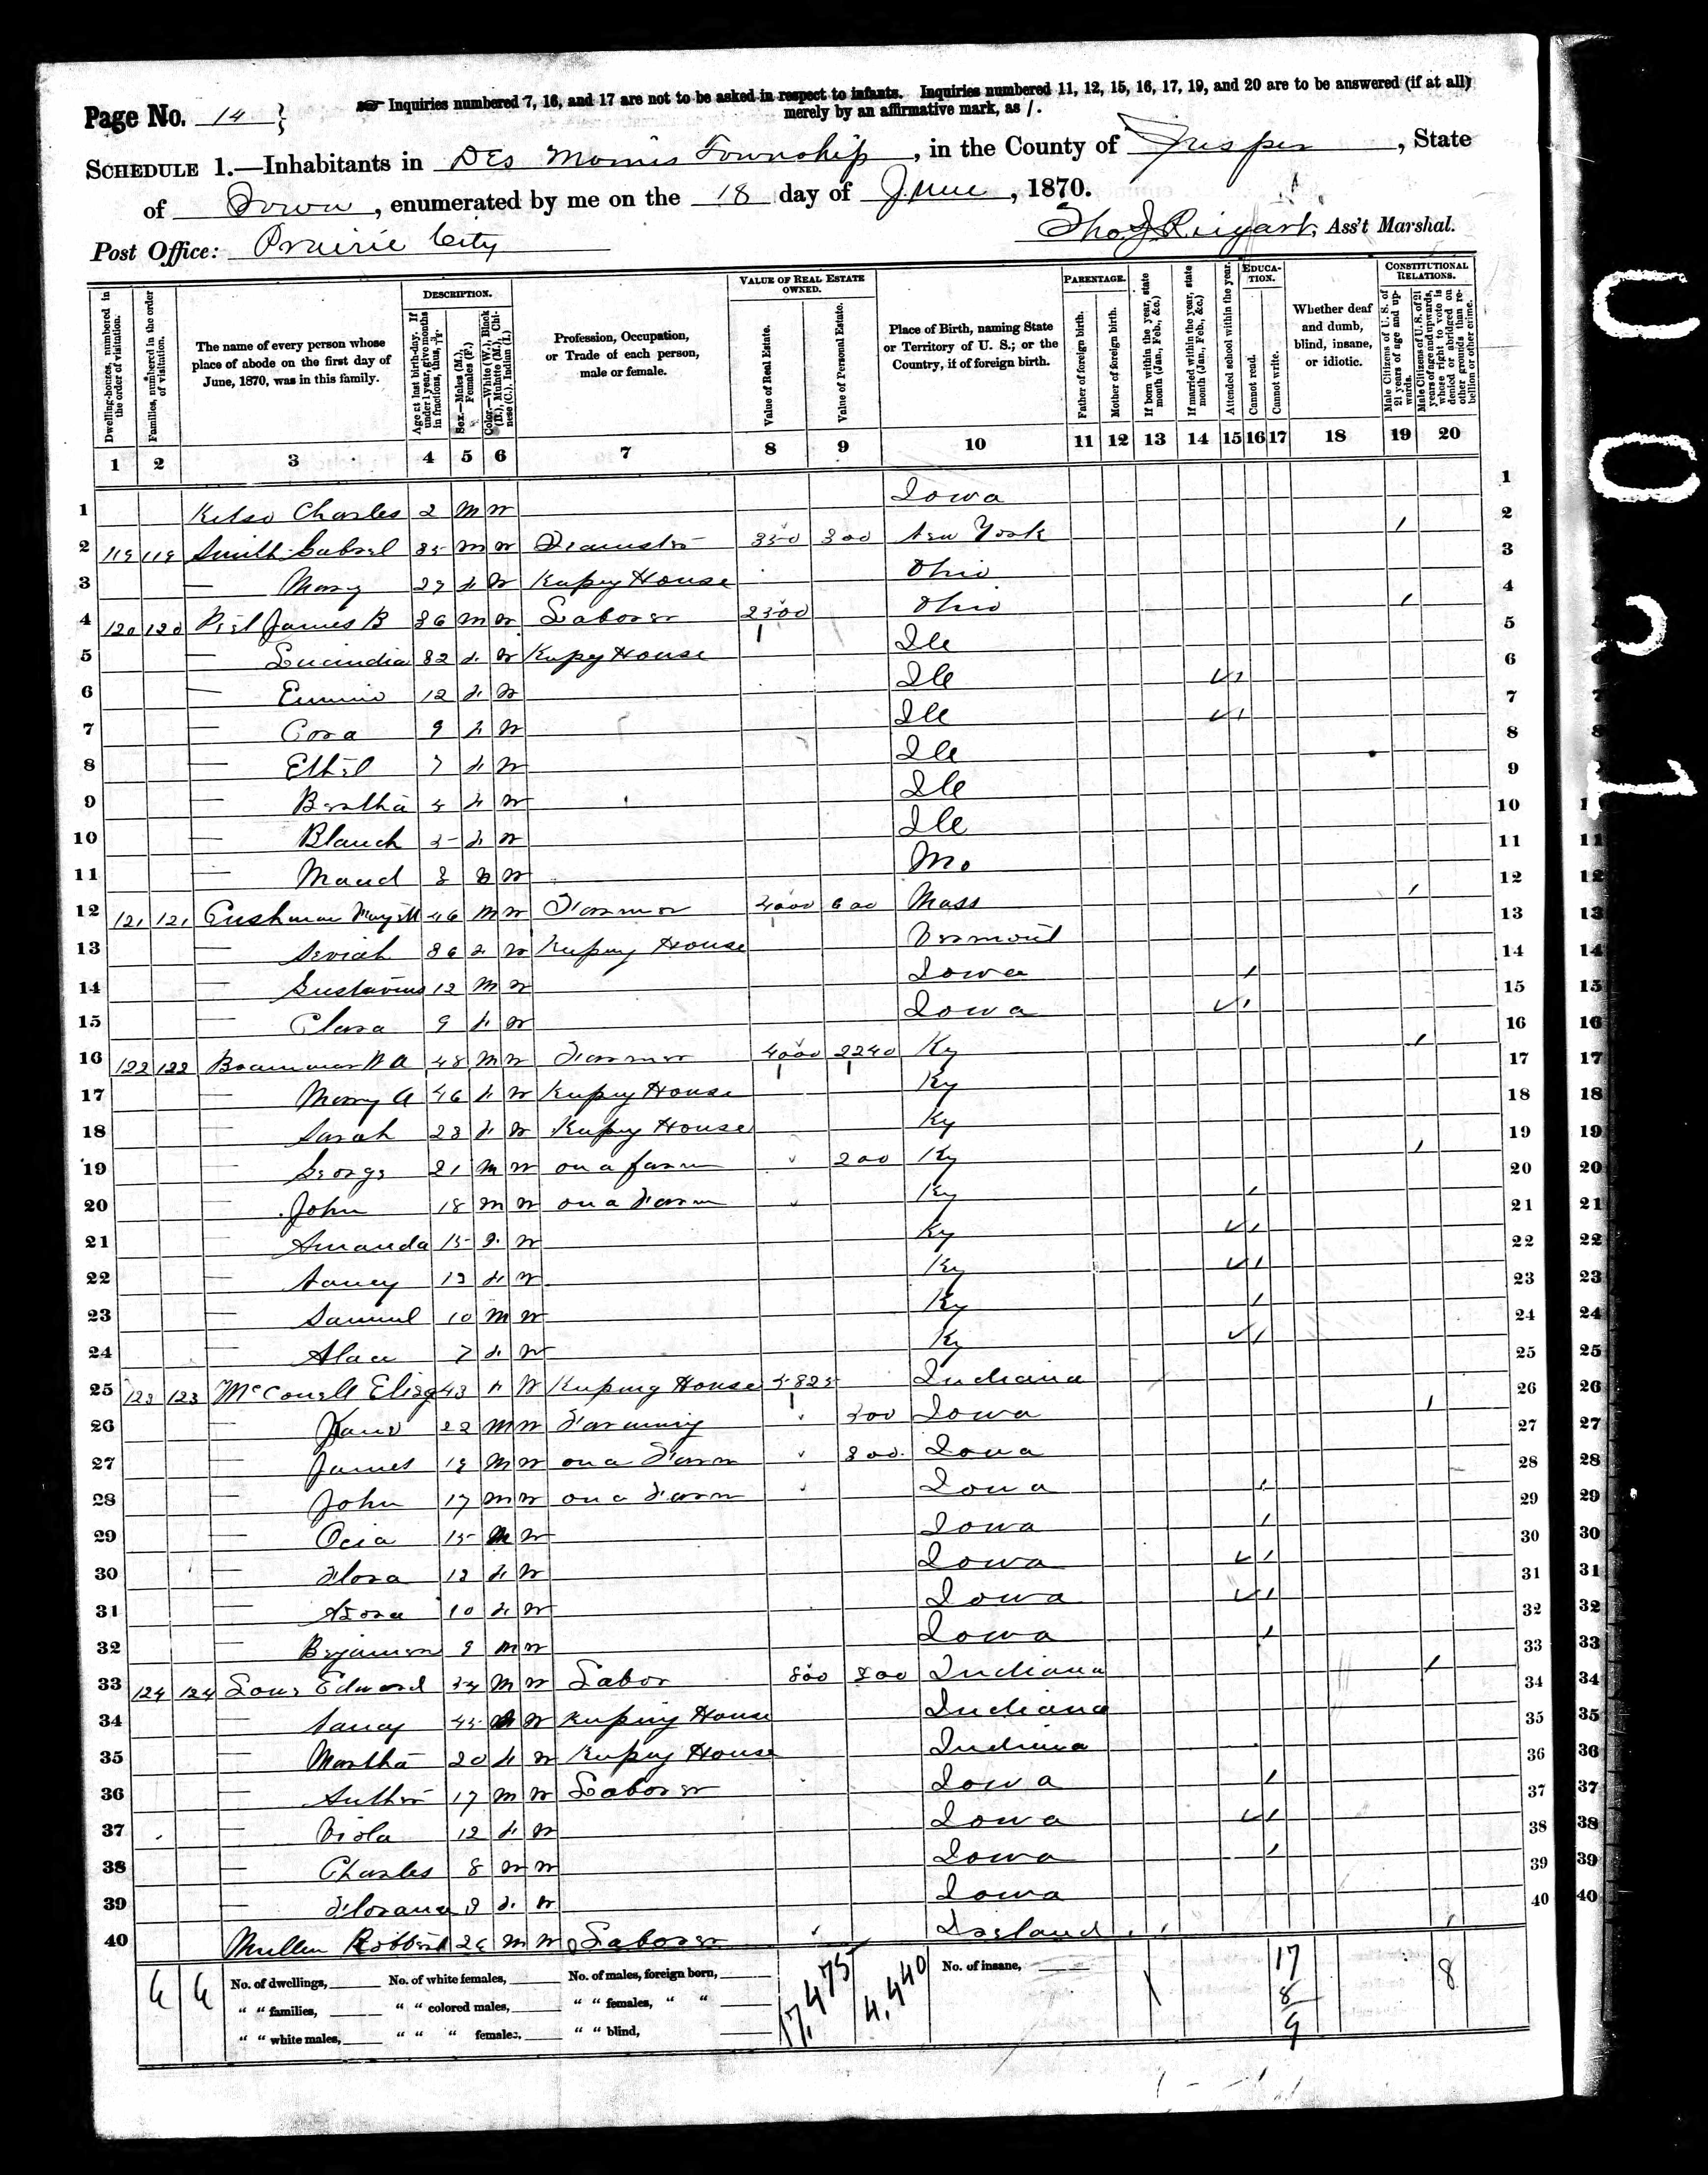 Page No. 14
Inquiries numbered 7, 16, and 17 are not to be asked in respect to infants. Inquiries numbered 11, 12, 15, 16, 17, 19, and 20 are to be answered (if at all)
merely by an affirmative mark, as /.
SCHEDULE 1.—Inhabitants in Des Moines Township, in the County of Jasper, State
of Iowa, enumerated by me on the 18 day of June, 1870.
Post Office: Prairie City
Thos J Rigart, Ass't Marshal.
Dwelling-houses, numbered in the order of visitation.
Families, numbered in the order of visitation.
The name of every person whose place of abode on the first day of June, 1870, was in this family.
DESCRIPTION.
Age at last birth-day. If under 1 year, give months in fractions, thus, 3/12.
Sex.—Males (M.), Females (F.)
Color.—White (W.), Black (B.), Mulatto (M.), Chinese (C.), Indian (I.)
Profession, Occupation, or Trade of each person, male or female.
VALUE OF REAL ESTATE OWNED.
Value of Real Estate.
Value of Personal Estate.
Place of Birth, naming State or Territory of U. S.; or the Country, if of foreign birth.
PARENTAGE.
Father of foreign birth.
Mother of foreign birth.
If born within the year, state month (Jan., Feb., &c.)
If married within the year, state month (Jan., Feb., &c.)
Attended school within the year.
EDUCATION.
Cannot read.
Cannot write.
Whether deaf and dumb, blind, insane, or idiotic.
CONSTITUTIONAL RELATIONS.
Male Citizens of U. S. of 21 years of age and upwards.
Male Citizens of U. S. of 21 years of age and upwards, whose right to vote is denied or abridged on other grounds than rebellion or other crime.
1 2 3 4 5 6 7 8 9 10 11 12 13 14 15 16 17 18 19 20
1 Kelso Charles 2 M W Iowa 1
2 119 119 Smith Gabrel 35 M W Teamster 350 300 New York 2
3 — Mary 27 f W Keeping House Ohio 3
4 120 120 James B 36 M W Laborer 2300 Ohio 4
5 — Lucindia 32 f W Keeping House Ill 5
6 — 12 f W Ill 6
7 — Cora 9 f W Ill 7
8 — Ethel 7 f W Ill 8
9 — Bertha f W Ill 9
10 — Blanch 5 f W Ill 10
11 — Maud 3 W Mo 11
12 121 121 Cushman 46 M W Farmer 4000 600 Mass 12
13 — 36 f W Keeping House Vermont 13
14 — Gustavus 12 M W Iowa 14
15 — Clara 9 f W Iowa 15
16 122 122 48 M W Farmer 4000 2240 Ky 16
17 — Mary A 46 f W Keeping House Ky 17
18 — Sarah 23 f W Keeping House Ky 18
19 — George 21 M W on a farm 200 Ky 19
20 — John 18 M W on a Farm Ky 20
21 — Amanda 15 f W Ky 21
22 — Nancy 13 f W Ky 22
23 — Samuel 10 M W Ky 23
24 — 7 f W Ky 24
25 123 123 McConell Eliza 43 f W Keeping House 4825 Indiana 25
26 — 22 M W Farming 300 Iowa 26
27 — James 19 M W on a Farm 300 Iowa 27
28 — John 17 M W on a Farm Iowa 28
29 — 15 M W Iowa 29
30 — Flora 12 f W Iowa 30
31 — 10 f W Iowa 31
32 — Benjamin 9 M W Iowa 32
33 124 124 Edward M W Labor 800 800 Indiana 33
34 — Nancy 45 W Keeping House Indiana 34
35 — Martha 20 f W Keeping House Indiana 35
36 — 17 M W Laborer Iowa 36
37 — Viola 12 f W Iowa 37
38 — Charles 8 M W Iowa 38
39 — f W Iowa 39
40 Mullen Robbert M W Laborer Ireland 40
6 6
No. of dwellings, No. of white females, No. of males, foreign born,
" " families, " " colored males, " " females, " "
" " white males, " " " females, " " blind,
17,475
4,440
No. of insane,
17
8
9
8